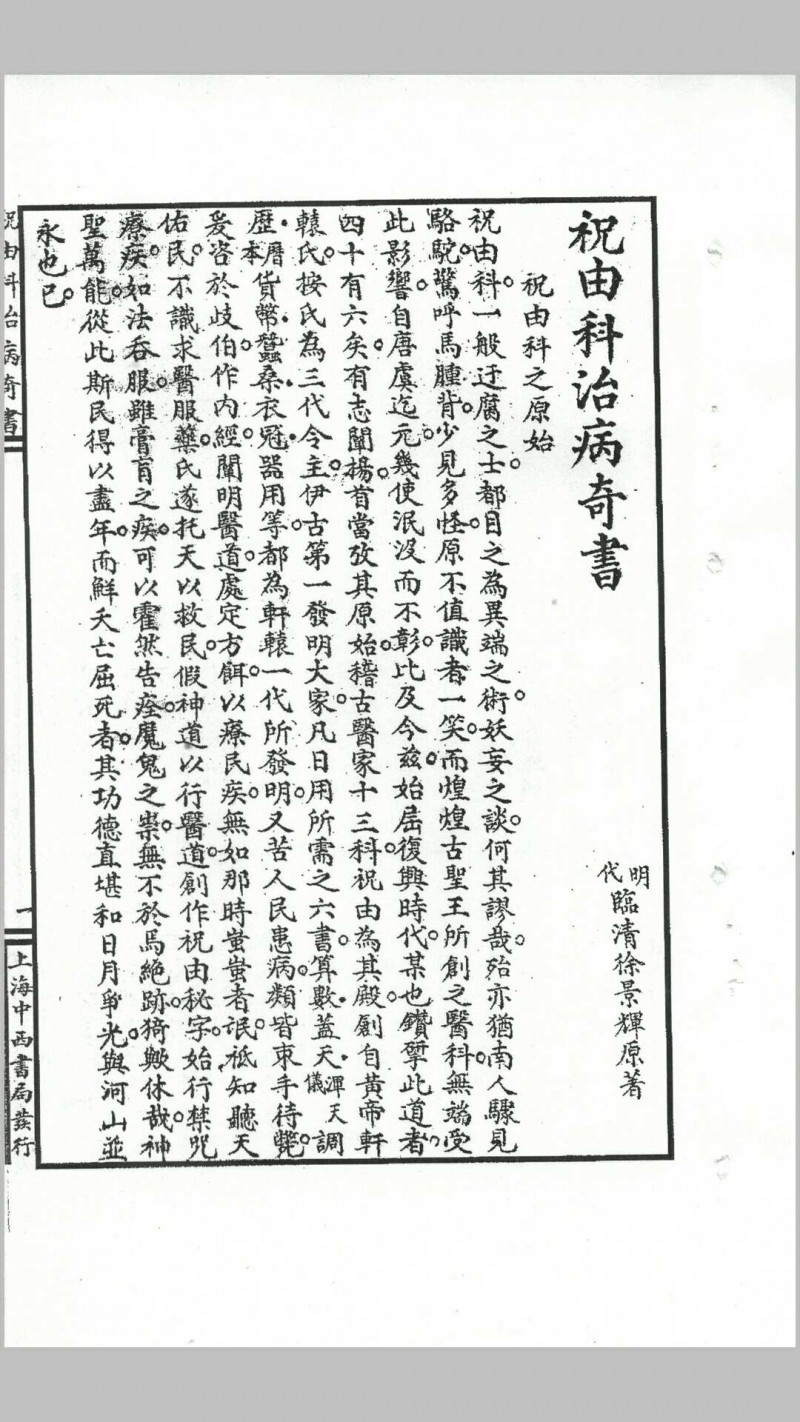 祝由科治病奇書
明代
臨清徐景輝原著
祝由科之原始
祝由科。一般迂腐之士。都目之為異端之術。妖妄之談。何其謬哉。殆亦猶南人驟見
駱駝。驚呼馬腫背。少見多怪。原不值識者一笑。而煌煌古聖王所創之醫科。無端受
此影響。自唐虞迄元。幾使泯沒而不彰。比及今茲。始屆復興時代。某也鑽揅此道者。
四十有六矣。有志闡揚。首當攷其原始。稽古醫家十三科。祝由為其殿。創自黃帝軒
轅氏。按氏為三代令主。伊古第一發明大家。凡日用所需之六書。算數。蓋天・渾天儀調
歷・本曆貨幣・蠶桑・衣冠・器用等。都為軒轅一代所發明。又苦人民患病。類皆束手待斃。
爰咨於歧伯。作內經。闡明醫道。處定方餌。以療民疾。無如那時蚩蚩者氓。祗知聽天
佑民。不識求醫服藥。氏遂托天以救民。假神道以行醫道。創作祝由秘字。始行禁咒
療疾。如法吞服。雖膏肓之疾。可以霍然告痊。魔鬼之祟。無不於焉絕跡。猗歟休哉。神
聖萬能。從此斯民得以盡年。而鮮夭亡屈死者。其功德直堪和日月爭光。與河山並
永也已。
祝由科治病奇書
一
上海中西書局發行